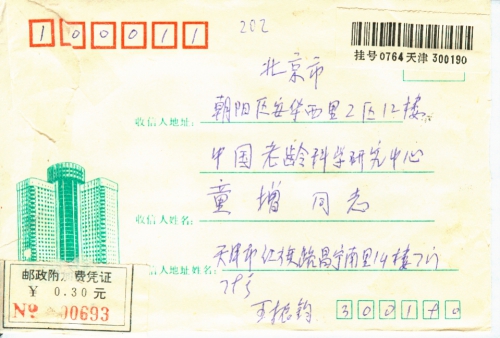 100011
202
挂号0764天津300190
北京市
朝阳区安华西里2区12楼
收信人地址:
中国老龄科学研究中心
童增 同志
收信人姓名:
天津市红旗路昌宁南里14楼7门
寄信人地址姓名
王振钧 300190
邮政附 费凭证
¥ 0.30 元
No 00693